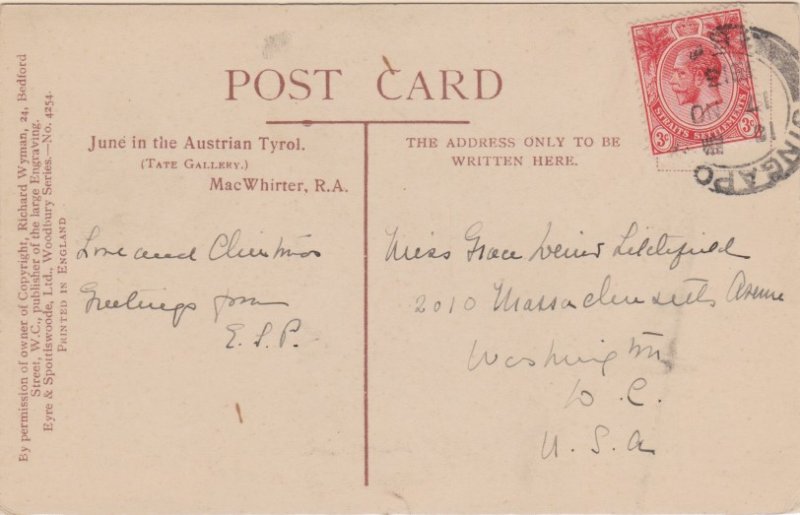 POST CARD
June in the Austrian Tyrol.
(TATE GALLERY.)
MacWhirter, R.A.
THE ADDRESS ONLY TO BE
WRITTEN HERE.
Love and Christmas
Greetings from
E. S. P.
Miss Grace Litchfield
2010 Massachusetts Avenue
Washington
D. C.
U. S. A
By permission of owner of Copyright, Richard Wyman, 24, Bedford
Street, W.C., publisher of the large Engraving.
Eyre & Spottiswoode, Ltd., Woodbury Series.—No. 4254.
PRINTED IN ENGLAND
STRAITS SETTLEMENTS
3c 3c
SINGAPO